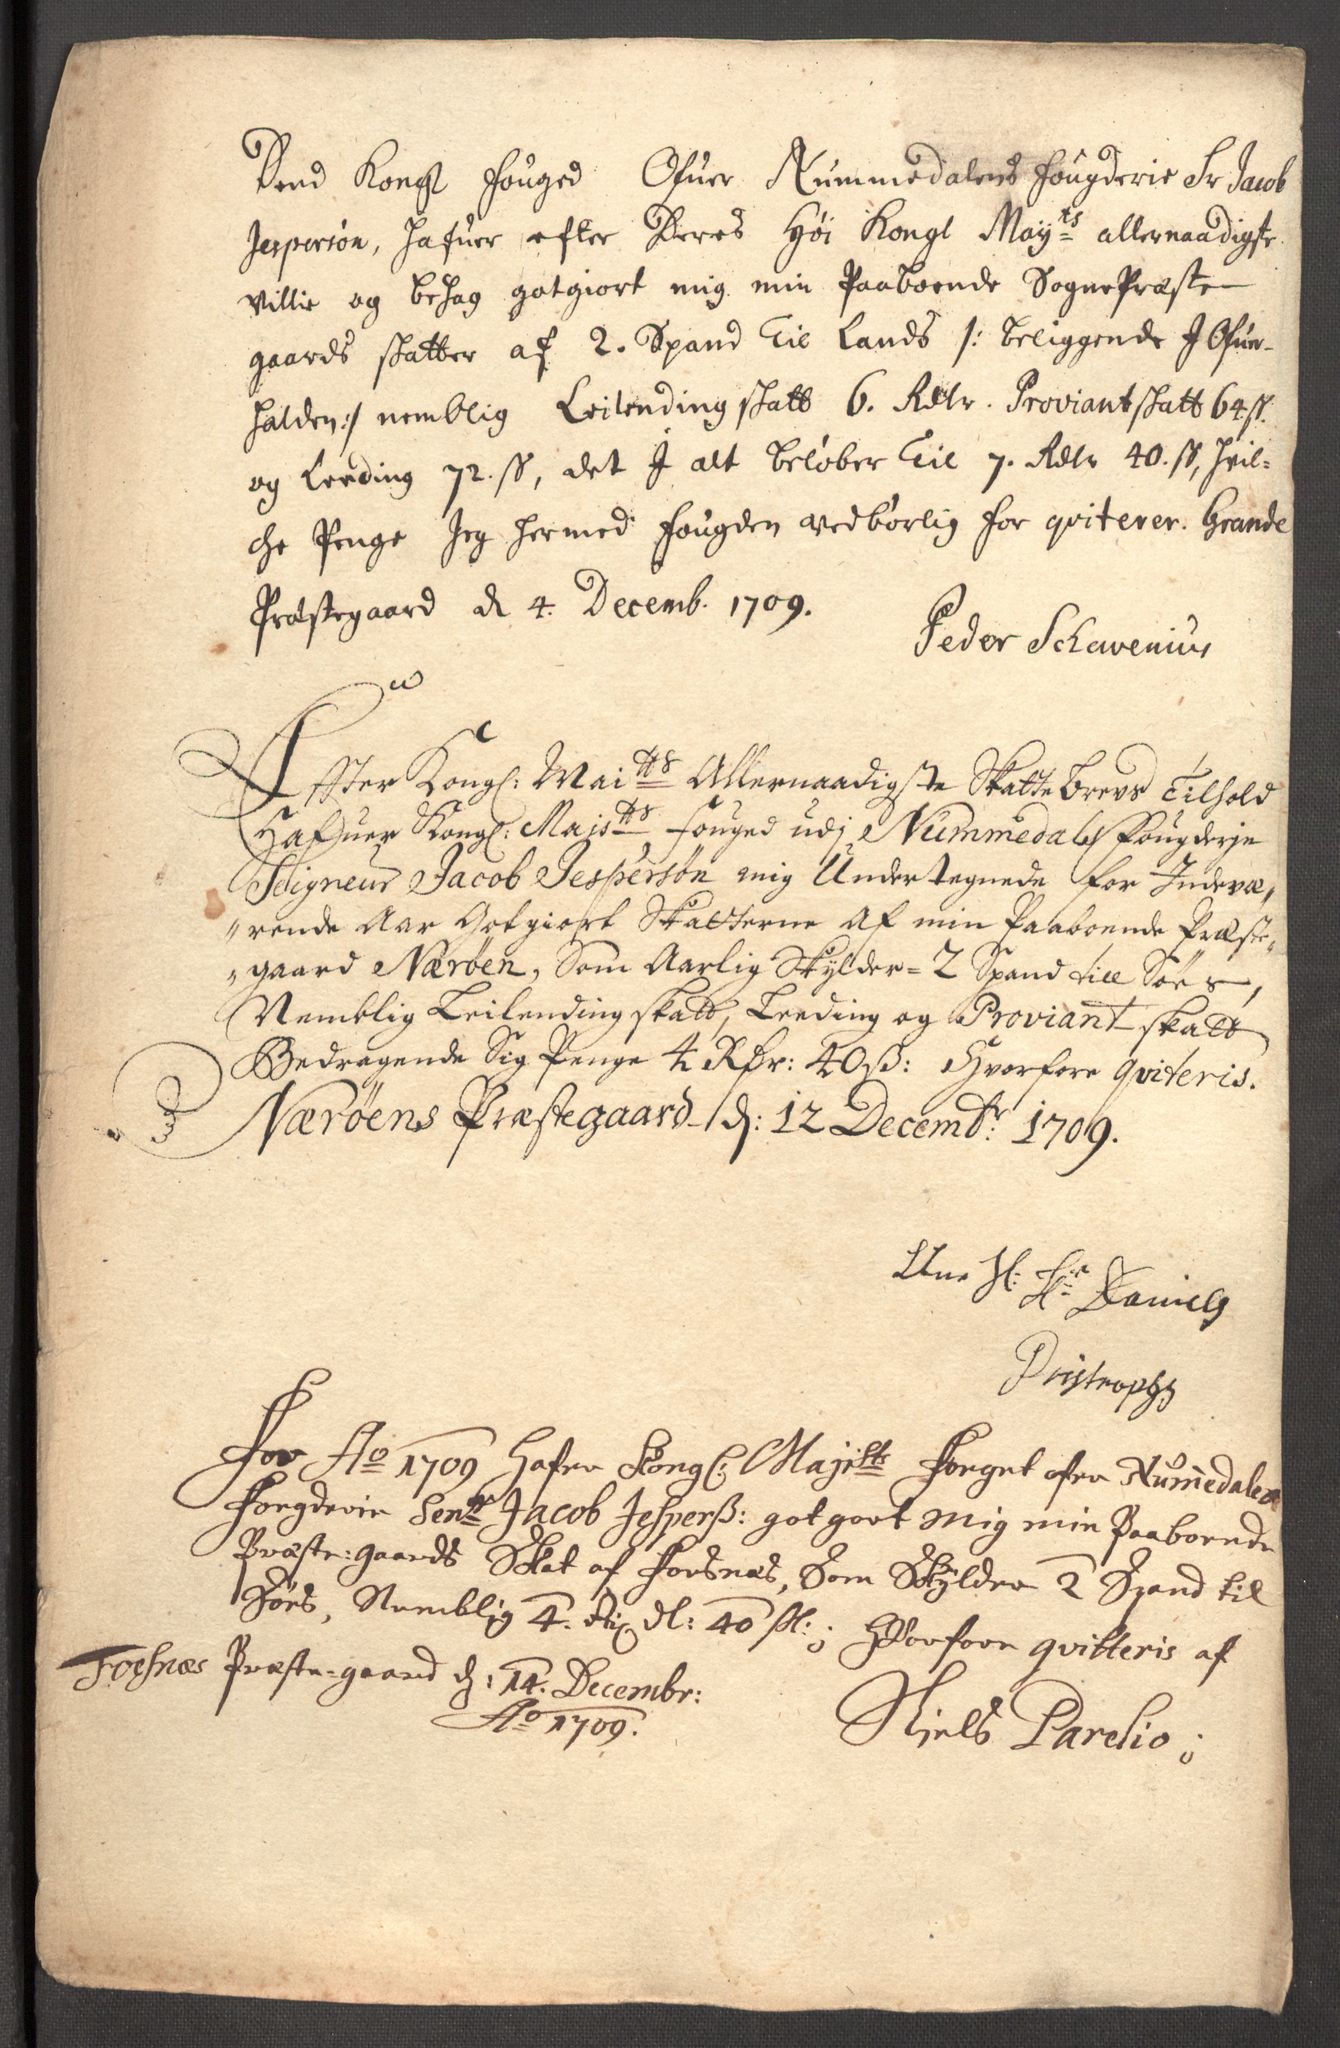 Dend Kongl Fouged Ofuer Nummedalens Fougderie Sr Jacob
Jespersøn, hafuer efter Deres Høi Kongl Mayts allernaadigste
villie og behag gotgiort mig min Paaboende SognePræste-
gaards skatter af 2. Spand Til Lands /: beliggende J Ofuer-
halden :/ nemblig Leilending skatt 6. Rdlr. Proviantskatt 64 ß.
og Leeding 72. ß, det J alt beløber Til 7. Rdlr 40. ß, hvil-
che Penge Jeg hermed Fougden vedbørlig for qviterer. Grande
Præstegaard d 4. Decemb. 1709.
Peder Schavenius
Effter Kongl: Maitts Allernaadigste Skattebrevs Tilhold
Hafuer Kongl: Majstts Fouged udj Nummedals Fougderje
Seigneur Jacob Jespersøn mig Undertegnede for Indevæ„
„rende Aar Gotgiort Skatterne af min Paaboende Præste„
„gaard Nærøen, Som Aarlig Skylder = 2 Spand till Søes,
Nemblig Leilending skatt, Leeding og Proviant skatt
Bedragende Sig Penge 4 Rdr: 40 ß: Hvorfore qviteris.
Nærøens Præstegaard d: 12 Decembr: 1709.
H: Daniels
For Ao 1709 Hafer Kongl: Majstts Foeget ofer Nummedalens
Foegderie Senr Jacob Jesperß: gotgort mig min Paaboende
Præste-gaards Skat af Foesnæs, Som Skylder 2 Spand til
Søes, Nemblig 4. Rix dl: 40 ßl:; Hvorfore qvitteris af
Foesnæs Præste-gaard d: 14. Decembr:
Ao 1709.
Niels Parelio;